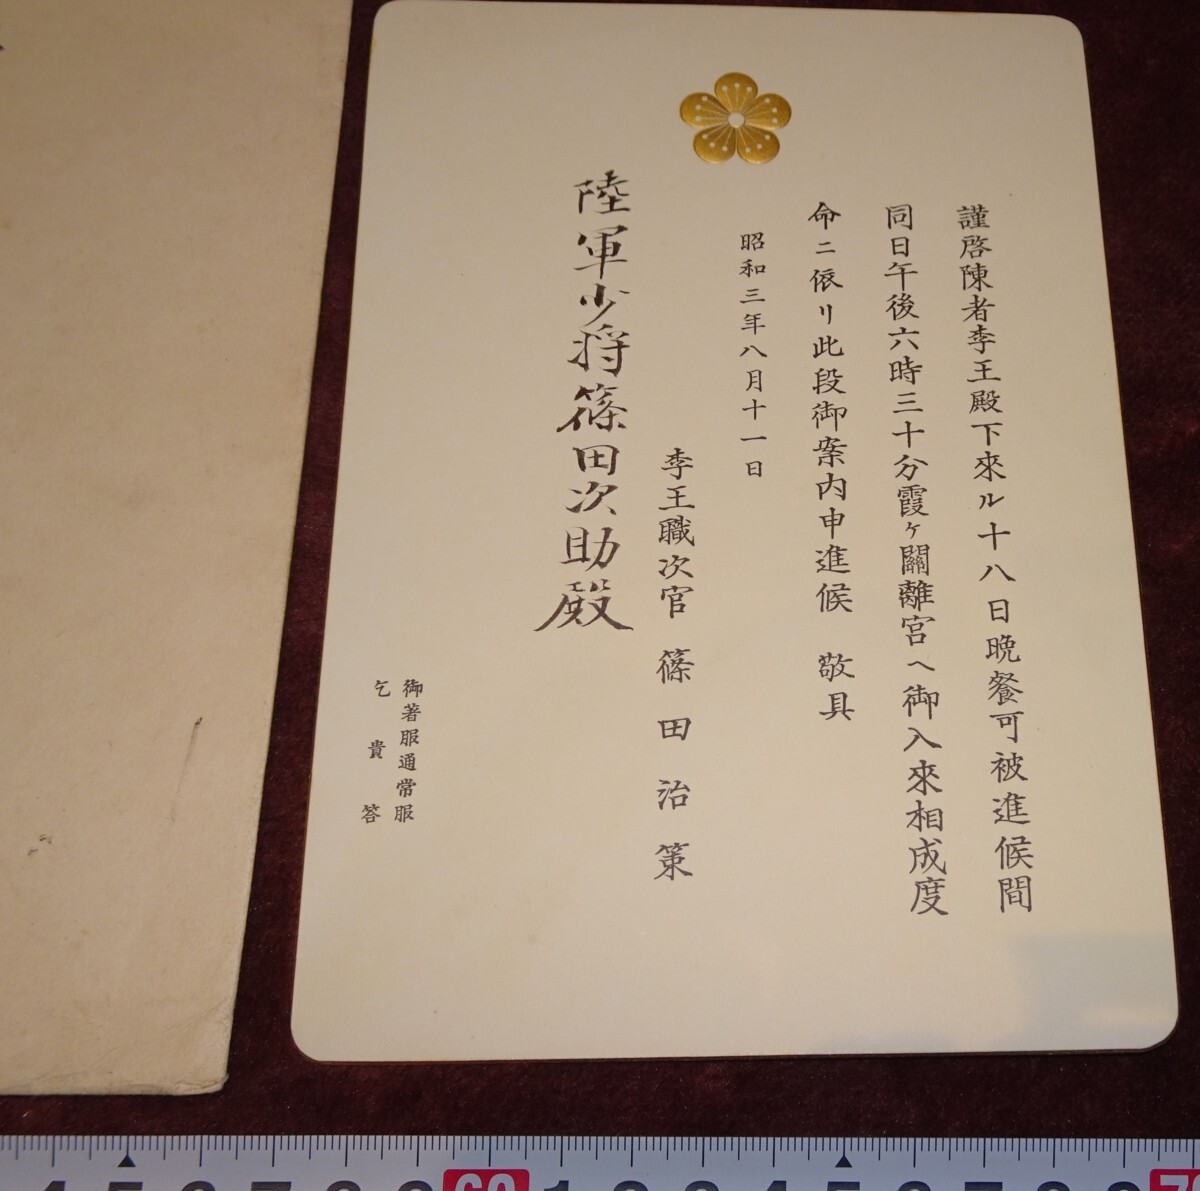 謹啓陳者李王殿下來ル十八日晩餐可被進候間
同日午後六時三十分霞ヶ關離宮へ御入來相成度
命ニ依リ此段御案内申進候 敬具
昭和三年八月十一日
李王職次官 篠田治策
陸軍少将篠田次助殿
御著服通常服
乞貴答
4 5 6 7 8 9 60 1 2 3 4 5 6 7 8 9 70